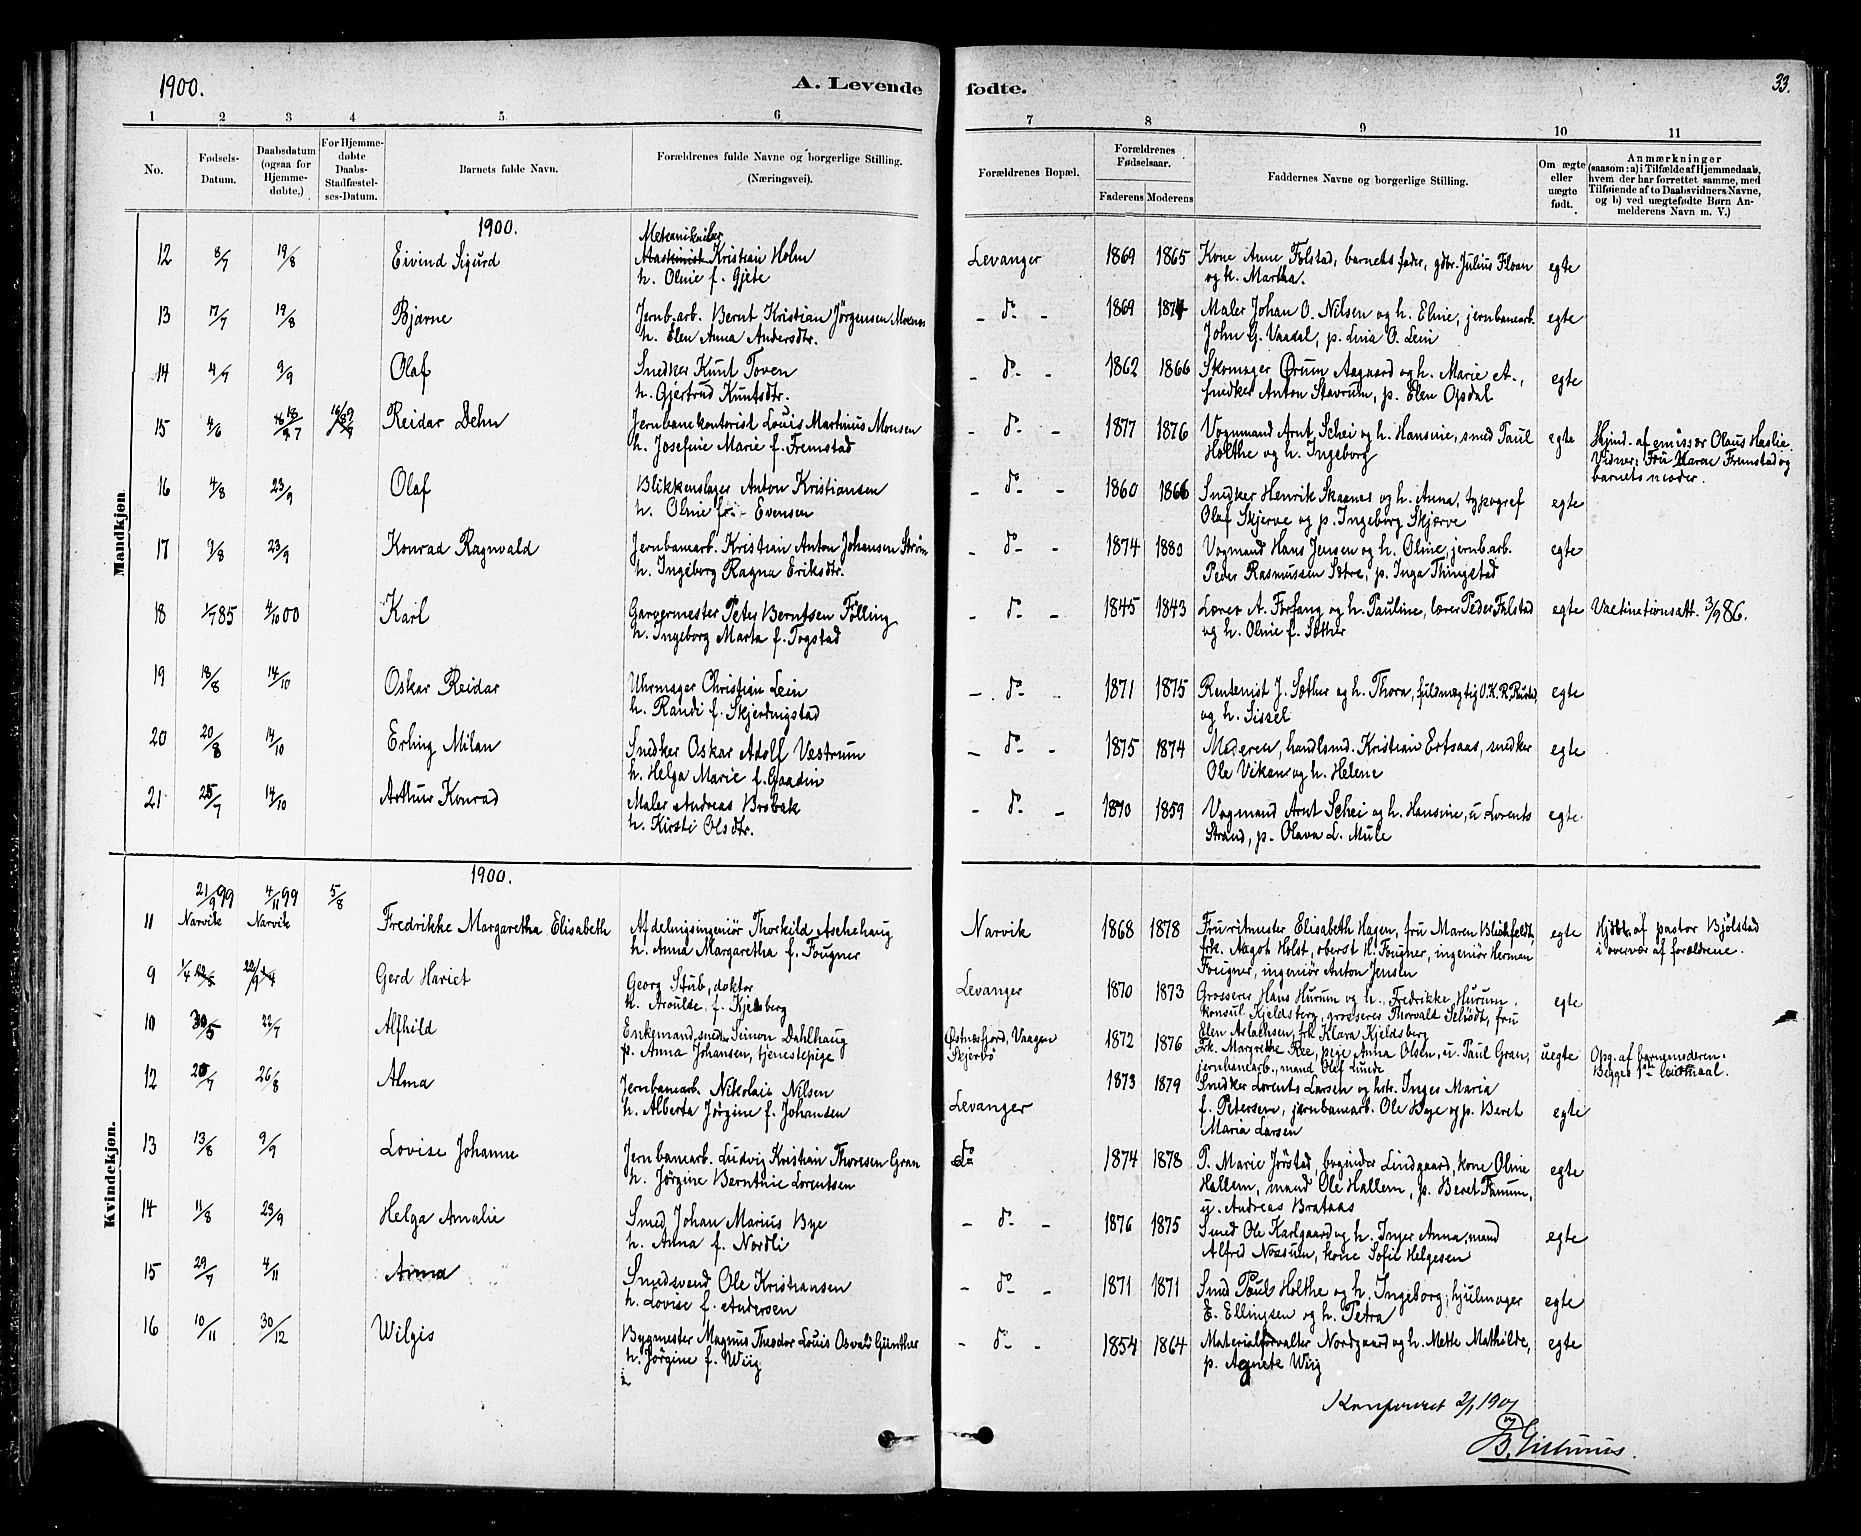 1900.
A. Levende fødte.
33.
1 2 3 4 5 6 7 8 9 10 11
No.
Fødsels-Datum.
Daabsdatum (ogsaa for Hjemmedøbte.)
For Hjemmedøbte Daabs-Stadfæstelses-Datum.
Barnets fulde Navn.
Forældrenes fulde Navne og borgerlige Stilling. (Næringsvei).
Forældrenes Bopæl.
Forældrenes Fødselsaar.
Faderens Moderens
Faddernes Navne og borgerlige Stilling.
Om ægte eller uægte født.
Anmærkninger (saasom: a) i Tilfælde af Hjemmedaab, hvem der har forrettet samme, med Tilføiende af to Daabsvidners Navne, og b) ved uægtefødte Børn Anmelderens Navn m. V.)
Mandkjøn.
1900.
12 8/7 19/8 Eivind Sigurd Kristian Holm Levanger 1869 1865 Kone Anne Følstad, barnets fader, gdbr. Julius Floan egte
h. Oline f. Gjete og h. Martha.
13 17/7 19/8 Bjarne Jernb.arb. Bernt Kristian Jörgensen Moenes - do - 1869 1874 Maler Johan O. Nilsen og h. Eline, jernbanearb. egte
h. Elen Anna Andersdtr. John G. Vaadal, p. Lina O. Lein
14 4/7 9/9 Olaf Snedker Knut Toven - do - 1862 1866 Skomager Ørum Aagaard og h. Marie A., egte
h. Gjertrud Knutsdtr. snedker Anton Stavrum, p. Elen Opdal
15 4/6 Reidar Dehn Jernbanekontorist Louis Martinius Monsen - do - 1877 1876 Vognmand Arnt Schei og h. Hansine, smed Paul egte Hjmd. af emissær Olaus Haslie
h. Josefine Marie f. Fremstad Holthe og h. Ingeborg Vidner: Fru Maren Fremstad og barnets moder.
16 4/8 23/9 Olaf Blikkenslager Anton Kristiansen - do - 1860 1866 Snedker Henrik Skaanes og h. Anna, typograf egte
h. Oline f. - Evensen Olaf Skjerve og p. Ingeborg Skjerve
17 9/8 23/9 Konrad Ragnvald Jernbanearb. Kristian Anton Johansen Strøm - do - 1874 1880 Vogmand Hans Jensen og h. Oline, jernb.arb. egte
h. Ingeborg Ragna Eriksdtr. Peder Rasmussen Sætre, p. Inga Thingstad
18 1/7 85 4/10 00 Karl Garvermester Peter Berntsen Følling - do - 1845 1843 Lærer A. Forfang og h. Pauline, lærer Peder Falstad egte Vaccinationsatt. 3/9 86.
h. Ingeborg Marta f. Togstad og h. Oline f. Sæther
19 18/8 14/10 Oskar Reidar Uhrmager Christian Lein - do - 1871 1875 Rentenist J. Sæther og h. Thora, fuldmægtig O. K. R. Rustad, egte
h. Randi f. Skjerdingstad og h. Sissel
20 20/8 14/10 Erling Milan Snedker Oskar Adolf Vestrum - do - 1875 1874 Moderen, handlsmd. Kristian Ertsaas, snedker egte
h. Helga Marie f. Gaadin Ole Vikan og h. Helene
21 25/7 14/10 Arthur Konrad Maler Andreas Brobak - do - 1870 1859 Vogmand Arnt Schei og h. Hansine, u Lorents egte
h. Kirsti Olsdtr. Strand, p. Olava L. Mule
Kvindekjøn.
1900.
21/9 99 4/11 99 5/8
11 Narvik Narvik Fredrikke Margaretha Elisabeth Afdelingsingeniør Thorkild Aschehaug Narvik 1868 1878 Fru ritmester Elisabeth Hagen, fru Maren Blichfeldt, egte Hjdbt. af pastor Bjölstad
h. Anna Margaretha f. Fougner frk. Nagot Holst, oberst H. Fougner, ingeniør Herman i overvær af forældrene.
Fougner, ingeniør Anton Jensen
9 1/4 Gerd Hariet Georg Stub, doktor Levanger 1870 1873 Grosserer Hans Hurum og h. Fredrikke Hurum, egte
h. Aroulde f. Kjelsberg konsul Kjeldsberg, grosserer Thorvald Schiødt, fru
Elen Aslachsen, frk Klara Kjeldsberg
10 30/5 22/7 Alfhild Enkemand, smed Simon Dahlhaug Østnesfjord, Vaagen 1872 1876 Frk. Margrethe Ree, pige Anna Olsen, u. Paul Gran, uegte Opg. af barnemoderen.
p. Anna Johansen, tjenestepige Skjerbö jernbanearb., mand Olef Lunde Begges 1ste leiermaal.
12 20/7 26/8 Alma Jernbanearb. Nikolai Nilsen Levanger 1873 1879 Snedker Lorents Larsen og hstr. Inger Maria egte
h. Alberta Jörgine f. Johansen f. Petersen, jernbanearb. Ole Bye og p. Beret
Maria Larsen
13 13/8 9/9 Lovise Johanne Jernbanearb. Ludvig Kristian Thoresen Gran do 1874 1878 P. Marie Jørstad, bogbinder Lindgaard, kone Oline egte
h. Jörgine Berntine Lorentsen Hallem, mand Ole Hallem, p. Beret Tanum,
u. Andreas Brataas
14 11/8 23/9 Helga Amalie Smed Johan Marius Bye - do - 1876 1875 Smed Ole Karlgaard og h. Inger Anna, mand egte
h. Anna f. Nordli Alfred Nossum, kone Sofie Helgesen
15 29/7 4/11 Anna Smedsvend Ole Kristiansen - do - 1871 1871 Smed Paul Holthe og h. Ingeborg, hjulmager egte
h. Lovise f. Andersen E. Ellingsen og h. Petra
16 10/11 30/12 Wilgis Bygmester Magnus Theodor Louis Osvald Günther - do - 1854 1864 Materialforvalter Nordgaard og h. Mette Mathilde, egte
h. Jörgine f. Wiig p. Agnete Wiig
Konfereret 2/1 1901